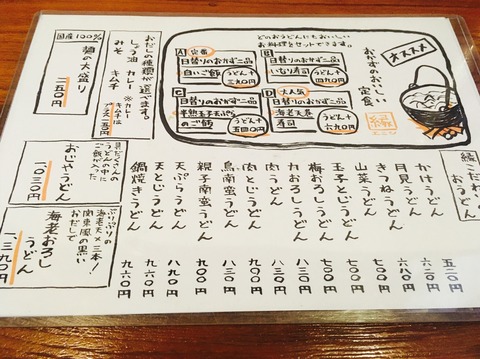 オススメ
おかずのおいしい
定食
縁
エニシ
どのおうどんにもおいしい
お料理をセットできます。
A 定番
日替りのおかず二品
白いご飯
うどん+
B 人気
日替りのおかず二品
いなり寿司
うどん+四九〇円
C
日替りのおかず二品
半熟玉子天ぷら
のご飯
うどん+五四〇円
D 大人気
日替りのおかず二品
海老天巻
寿司
うどん+六九〇円
おだしの種類が選べます。
しょう油 カレー
みそ キムチ
※カレー
キムチは
プラス
国産100%
麺の大盛り
一五〇円
縁こだわり
おうどん
かけうどん 五二〇円
月見うどん 六二〇円
きつねうどん 六八〇円
山菜うどん 七〇〇円
玉子とじうどん 七〇〇円
梅おろしうどん 七〇〇円
力おろしうどん 八三〇円
肉うどん 八三〇円
肉とじうどん 九〇〇円
鳥南蛮うどん 八三〇円
親子南蛮うどん 九〇〇円
天ぷらうどん 八九〇円
天とじうどん 九六〇円
鍋焼きうどん 九八〇円
具だくさんの
うどんの中に
ご飯が入った
おじやうどん
一〇三〇円
ぷりぷりの
海老天×三本!
関東風の黒い
おだしで
海老おろし
うどん
一、三九〇円